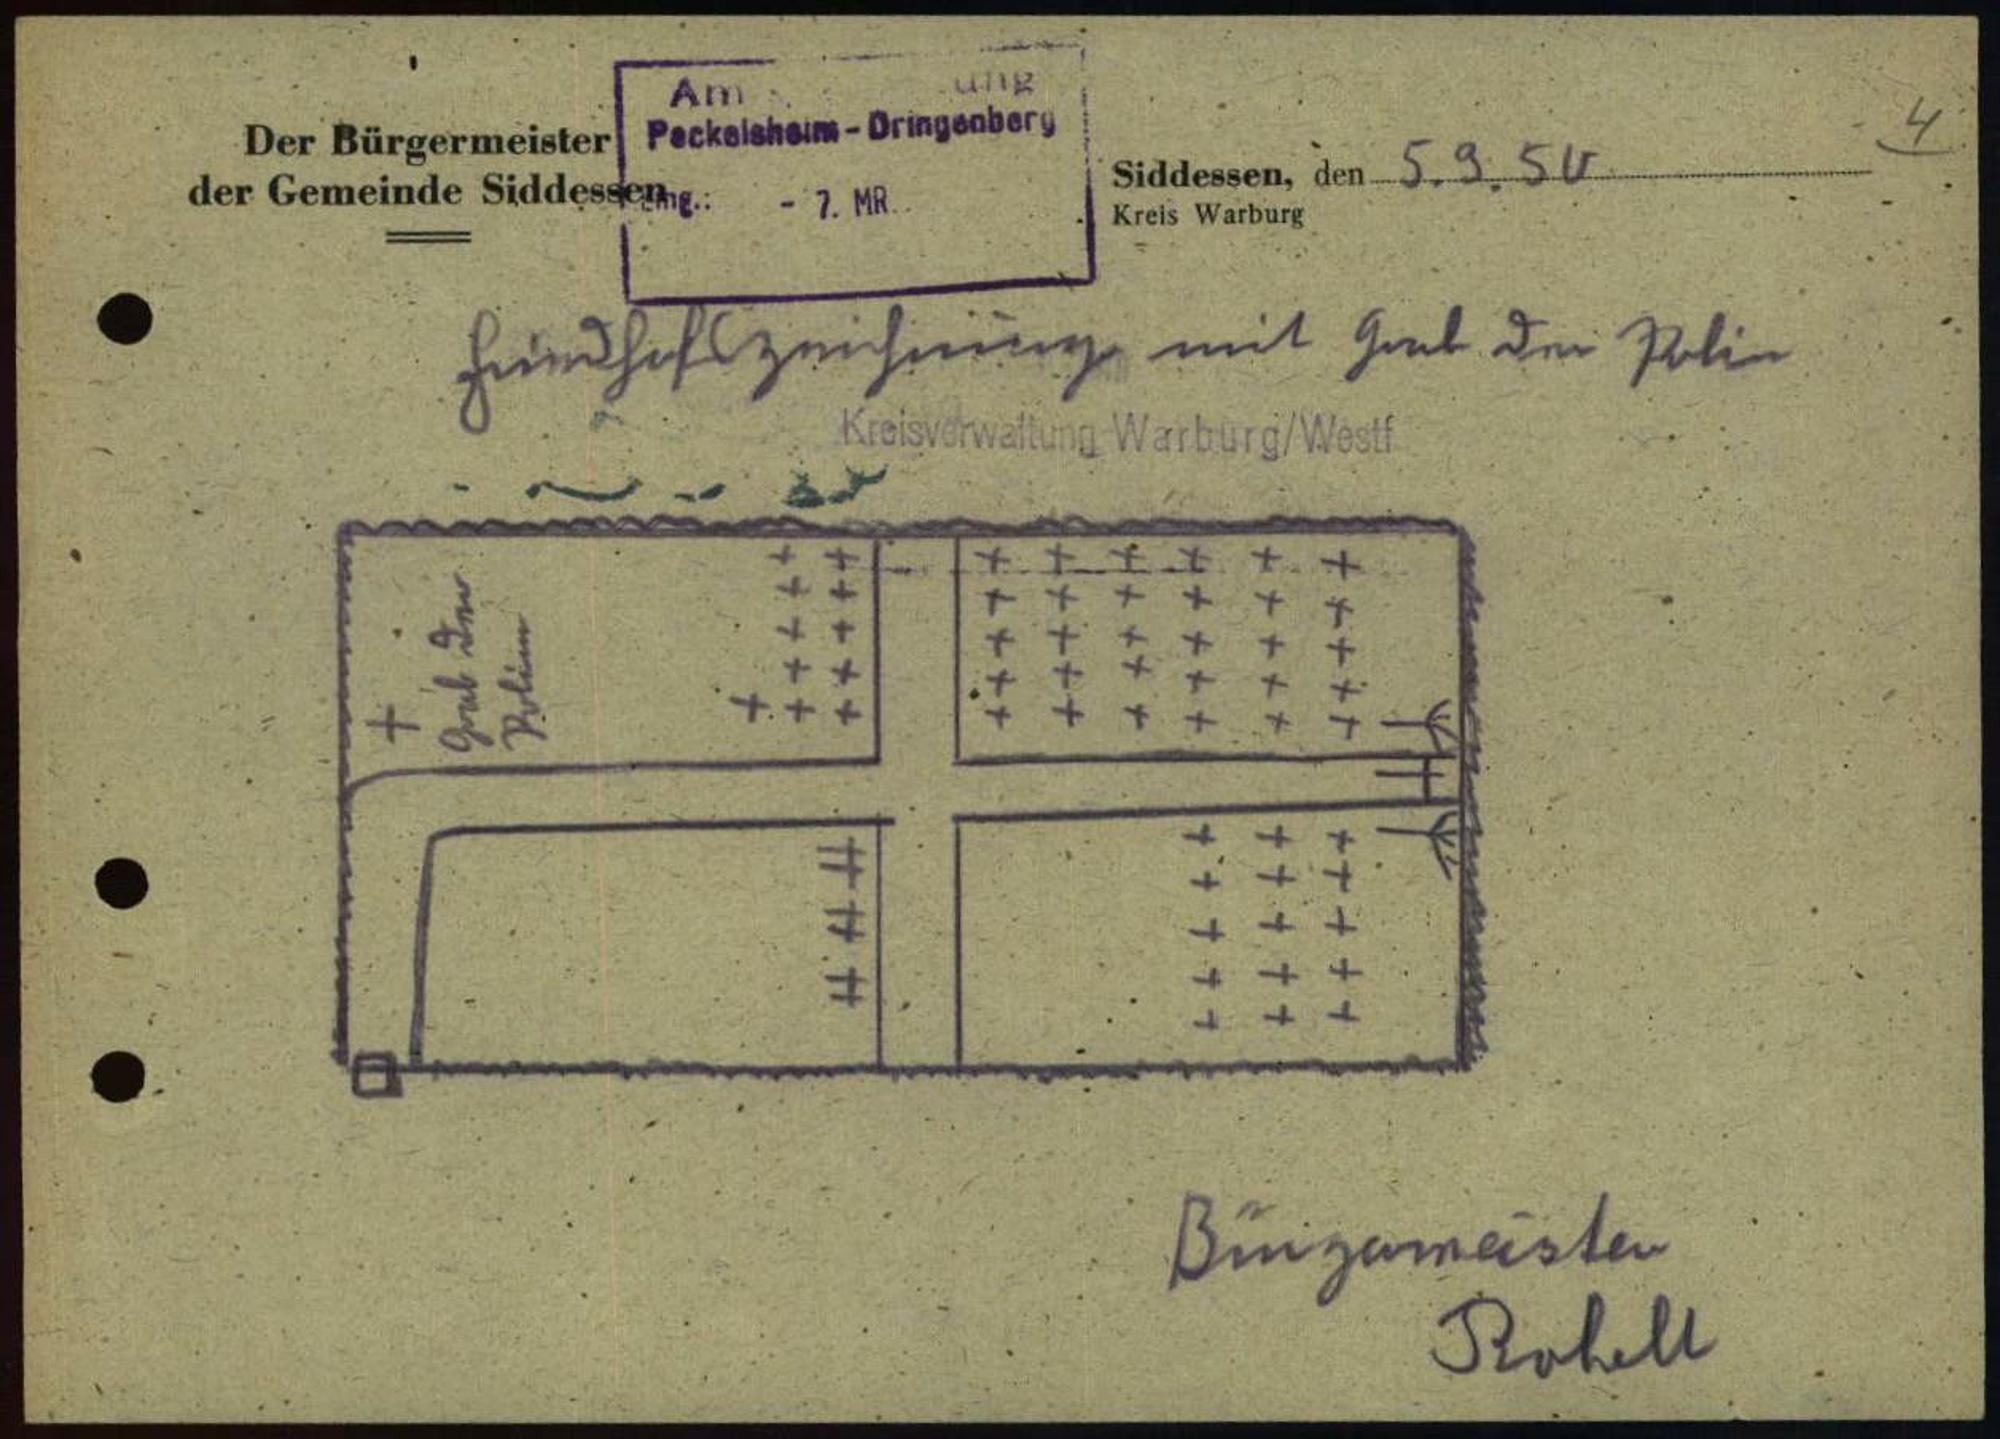 4
Der Bürgermeister
der Gemeinde Siddessen
Peckelsheim-Dringenberg
Eing.: - 7. MR
Siddessen, den 5.3.50
Kreis Warburg
Friedhofszeichnung mit Grab der Polin
Kreisverwaltung Warburg/Westf
Grab der
Polin
Bürgermeister